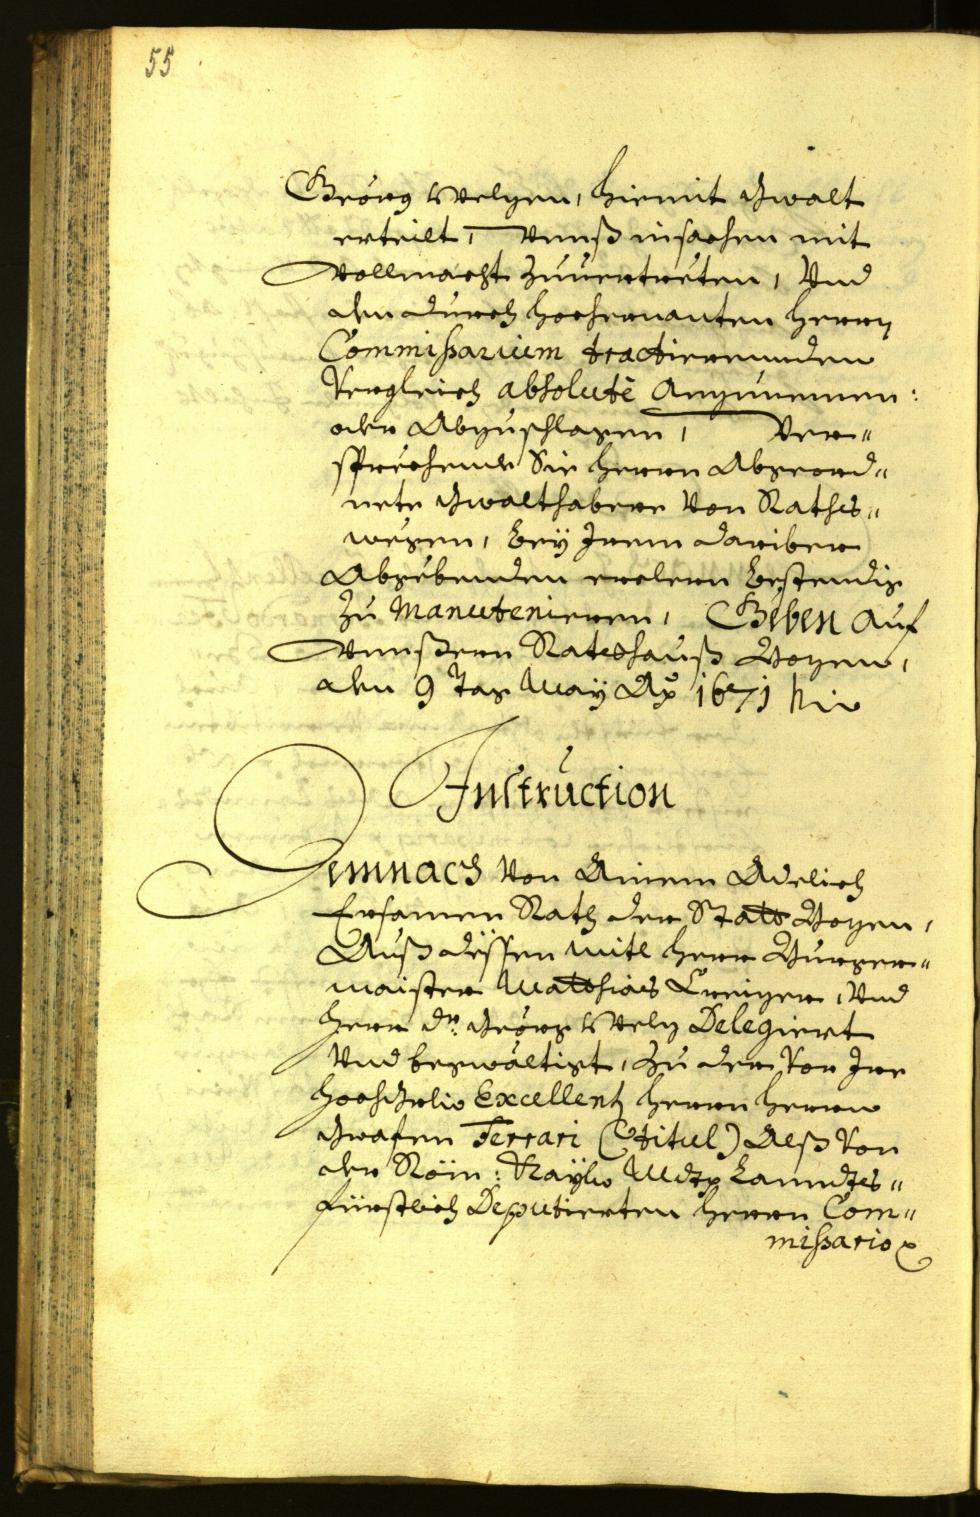 55
Georg Welzen, hiemit Gwalt
erteilt, Vnnß in sachen mit
Vollmacht zuuertreten, Vnd
den durch hochernanten Herrn
Commißarium tractierennden
Vergleich absolutè Anzunemen:
oder Abzuschlagen, Ver-
sprechende Sie herrn Abgeord-
nete Gwalthabere Von Raths-
wegen, bey Irem dariber
Abgebenden erclern bestendig
zu Manutenieren, Geben Auf
Vnnßern Rateshauß Bozen,
den 9 Tag May Ao 1671
Instruction
Demnach Von Ainem Adelich
Ersamen Rath der Statt Bozen,
Auß dessen mitl herr Burger-
maister Matthias Creizer, Vnd
herr Dr. Georg Welz Delegiert
Vnd begwaltigt, zu der Von Ire
hochGrlio Excellentz herrn herrn
Grafen Ferrari (titul) Alß Von
der Röm: Kayßlr Mdtz Lanndts-
fürstlich Deputierten herrn Com-
mißario